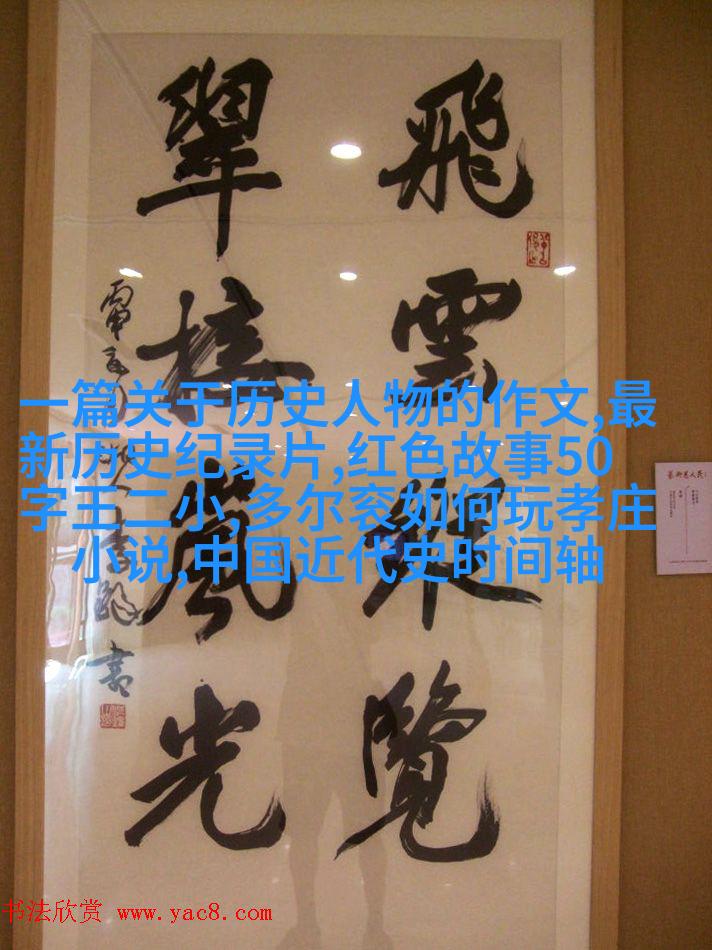 飛雲覽
翠接嵐光
一篇关于历史人物的作文,最
新历史纪录片,红色故事50
字王二小,多尔衮如何玩孝庄
小说,中国近代史时间轴
书法欣赏 www.yac8.com